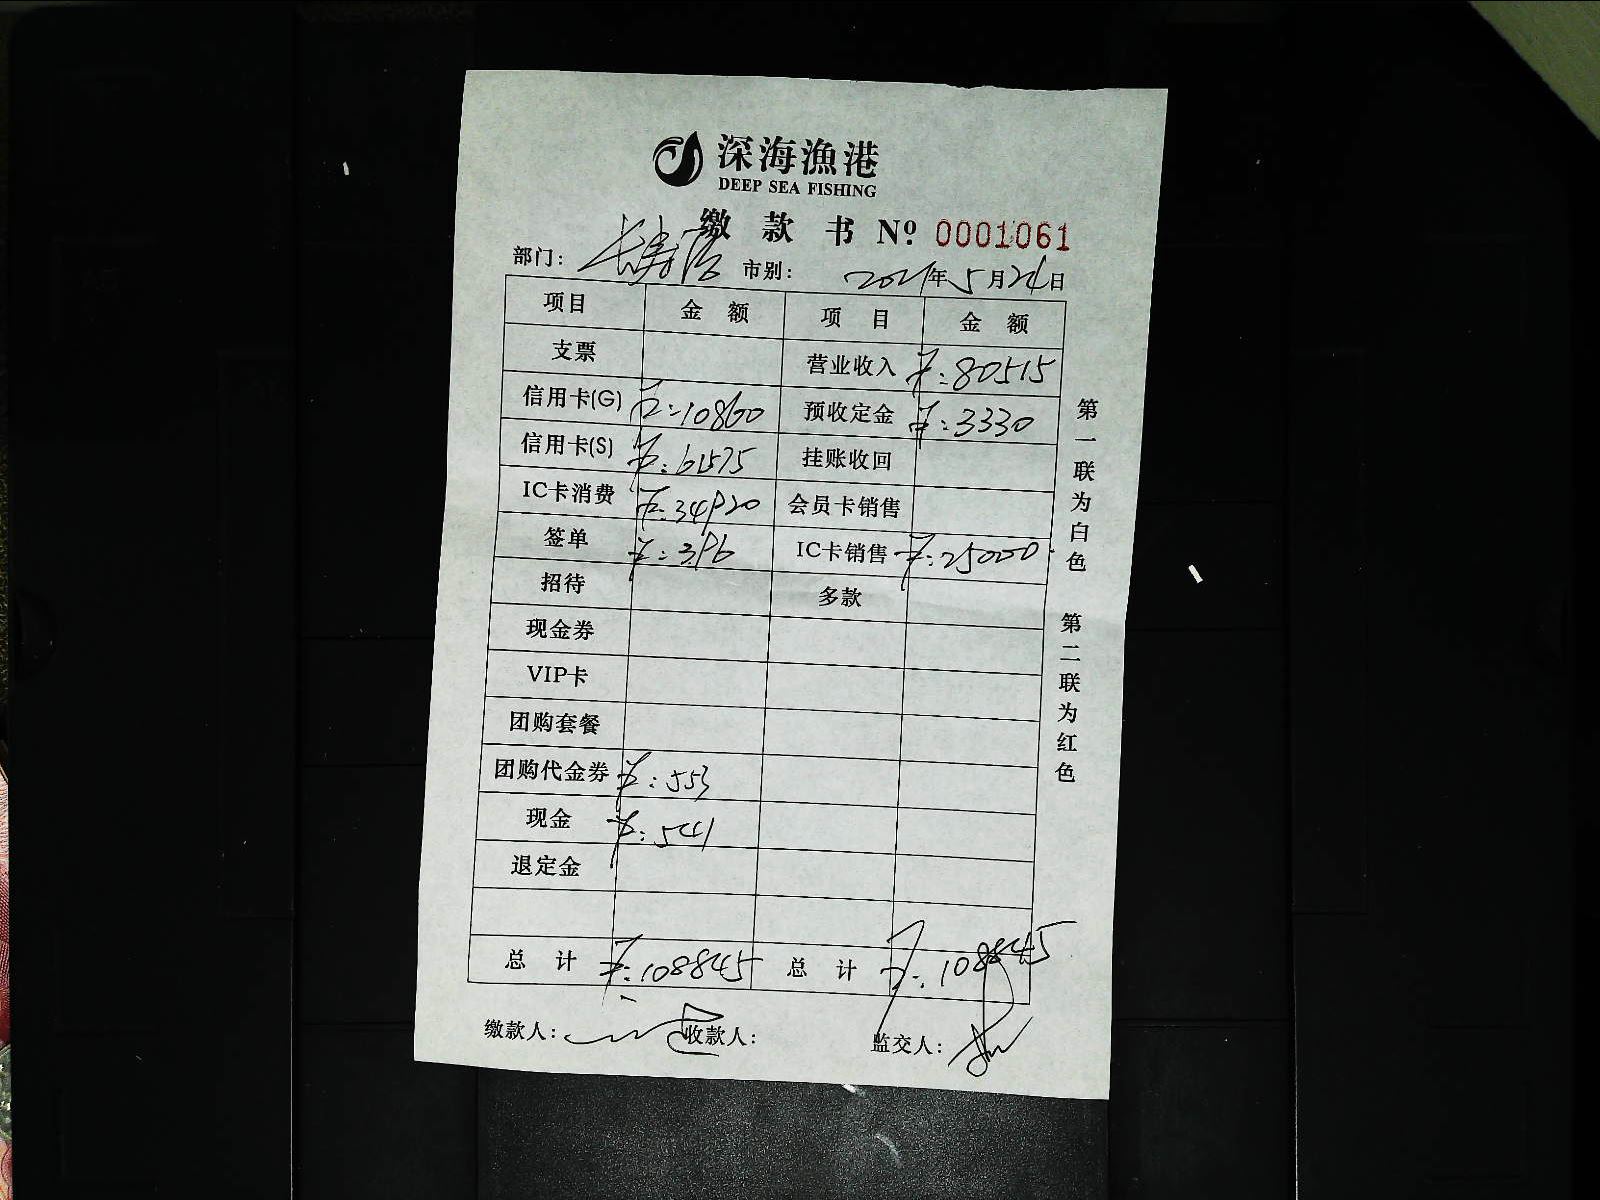 深海漁港
DEEP SEA FISHING
缴款书 Nº 0001061
部门: 长寿路 市别: 2021年5月24日
项目 金额 项目 金额
支票 营业收入 ¥:80515
信用卡(G) ¥:10860 预收定金 ¥:3330
信用卡(S) ¥:61575 挂账收回
IC卡消费 ¥:34920 会员卡销售
签单 ¥:396 IC卡销售 ¥:25000
招待 多款
现金券
VIP卡
团购套餐
团购代金券 ¥:553
现金 ¥:541
退定金
总计 ¥:108845 总计 ¥:108845
缴款人: 收款人: 监交人:
第一联为白色 第二联为红色